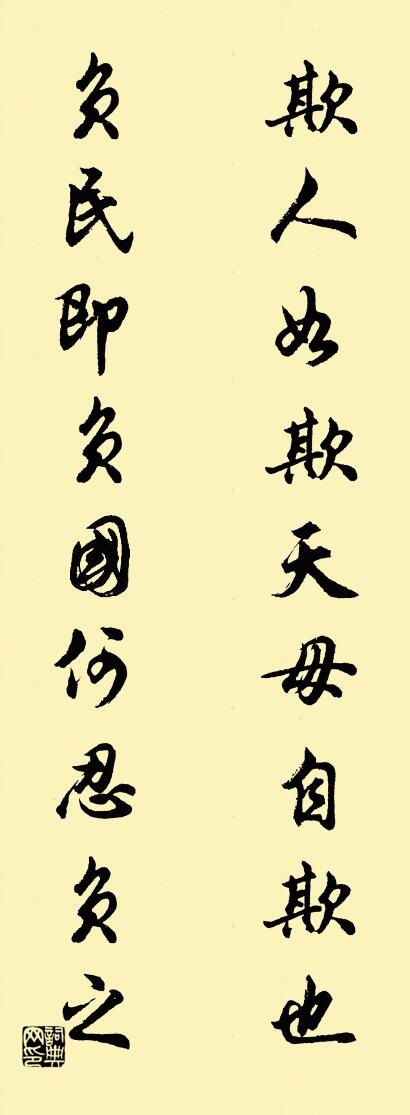 欺人如欺天毋自欺也
負民即負國何忍負之
詞典网印